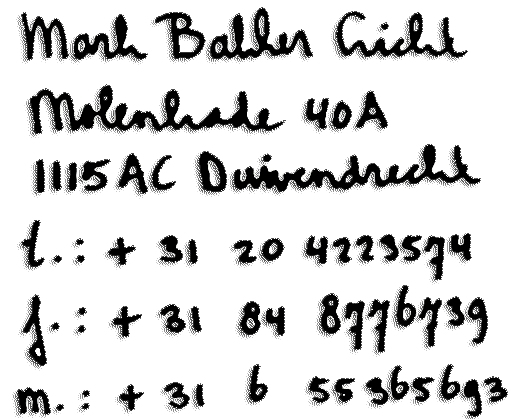 Mark Bakker
Molenkade 40A
1115 AC Duivendrecht
t.: + 31 20 4223574
f.: + 31 84 8776739
m.: + 31 6 55365693